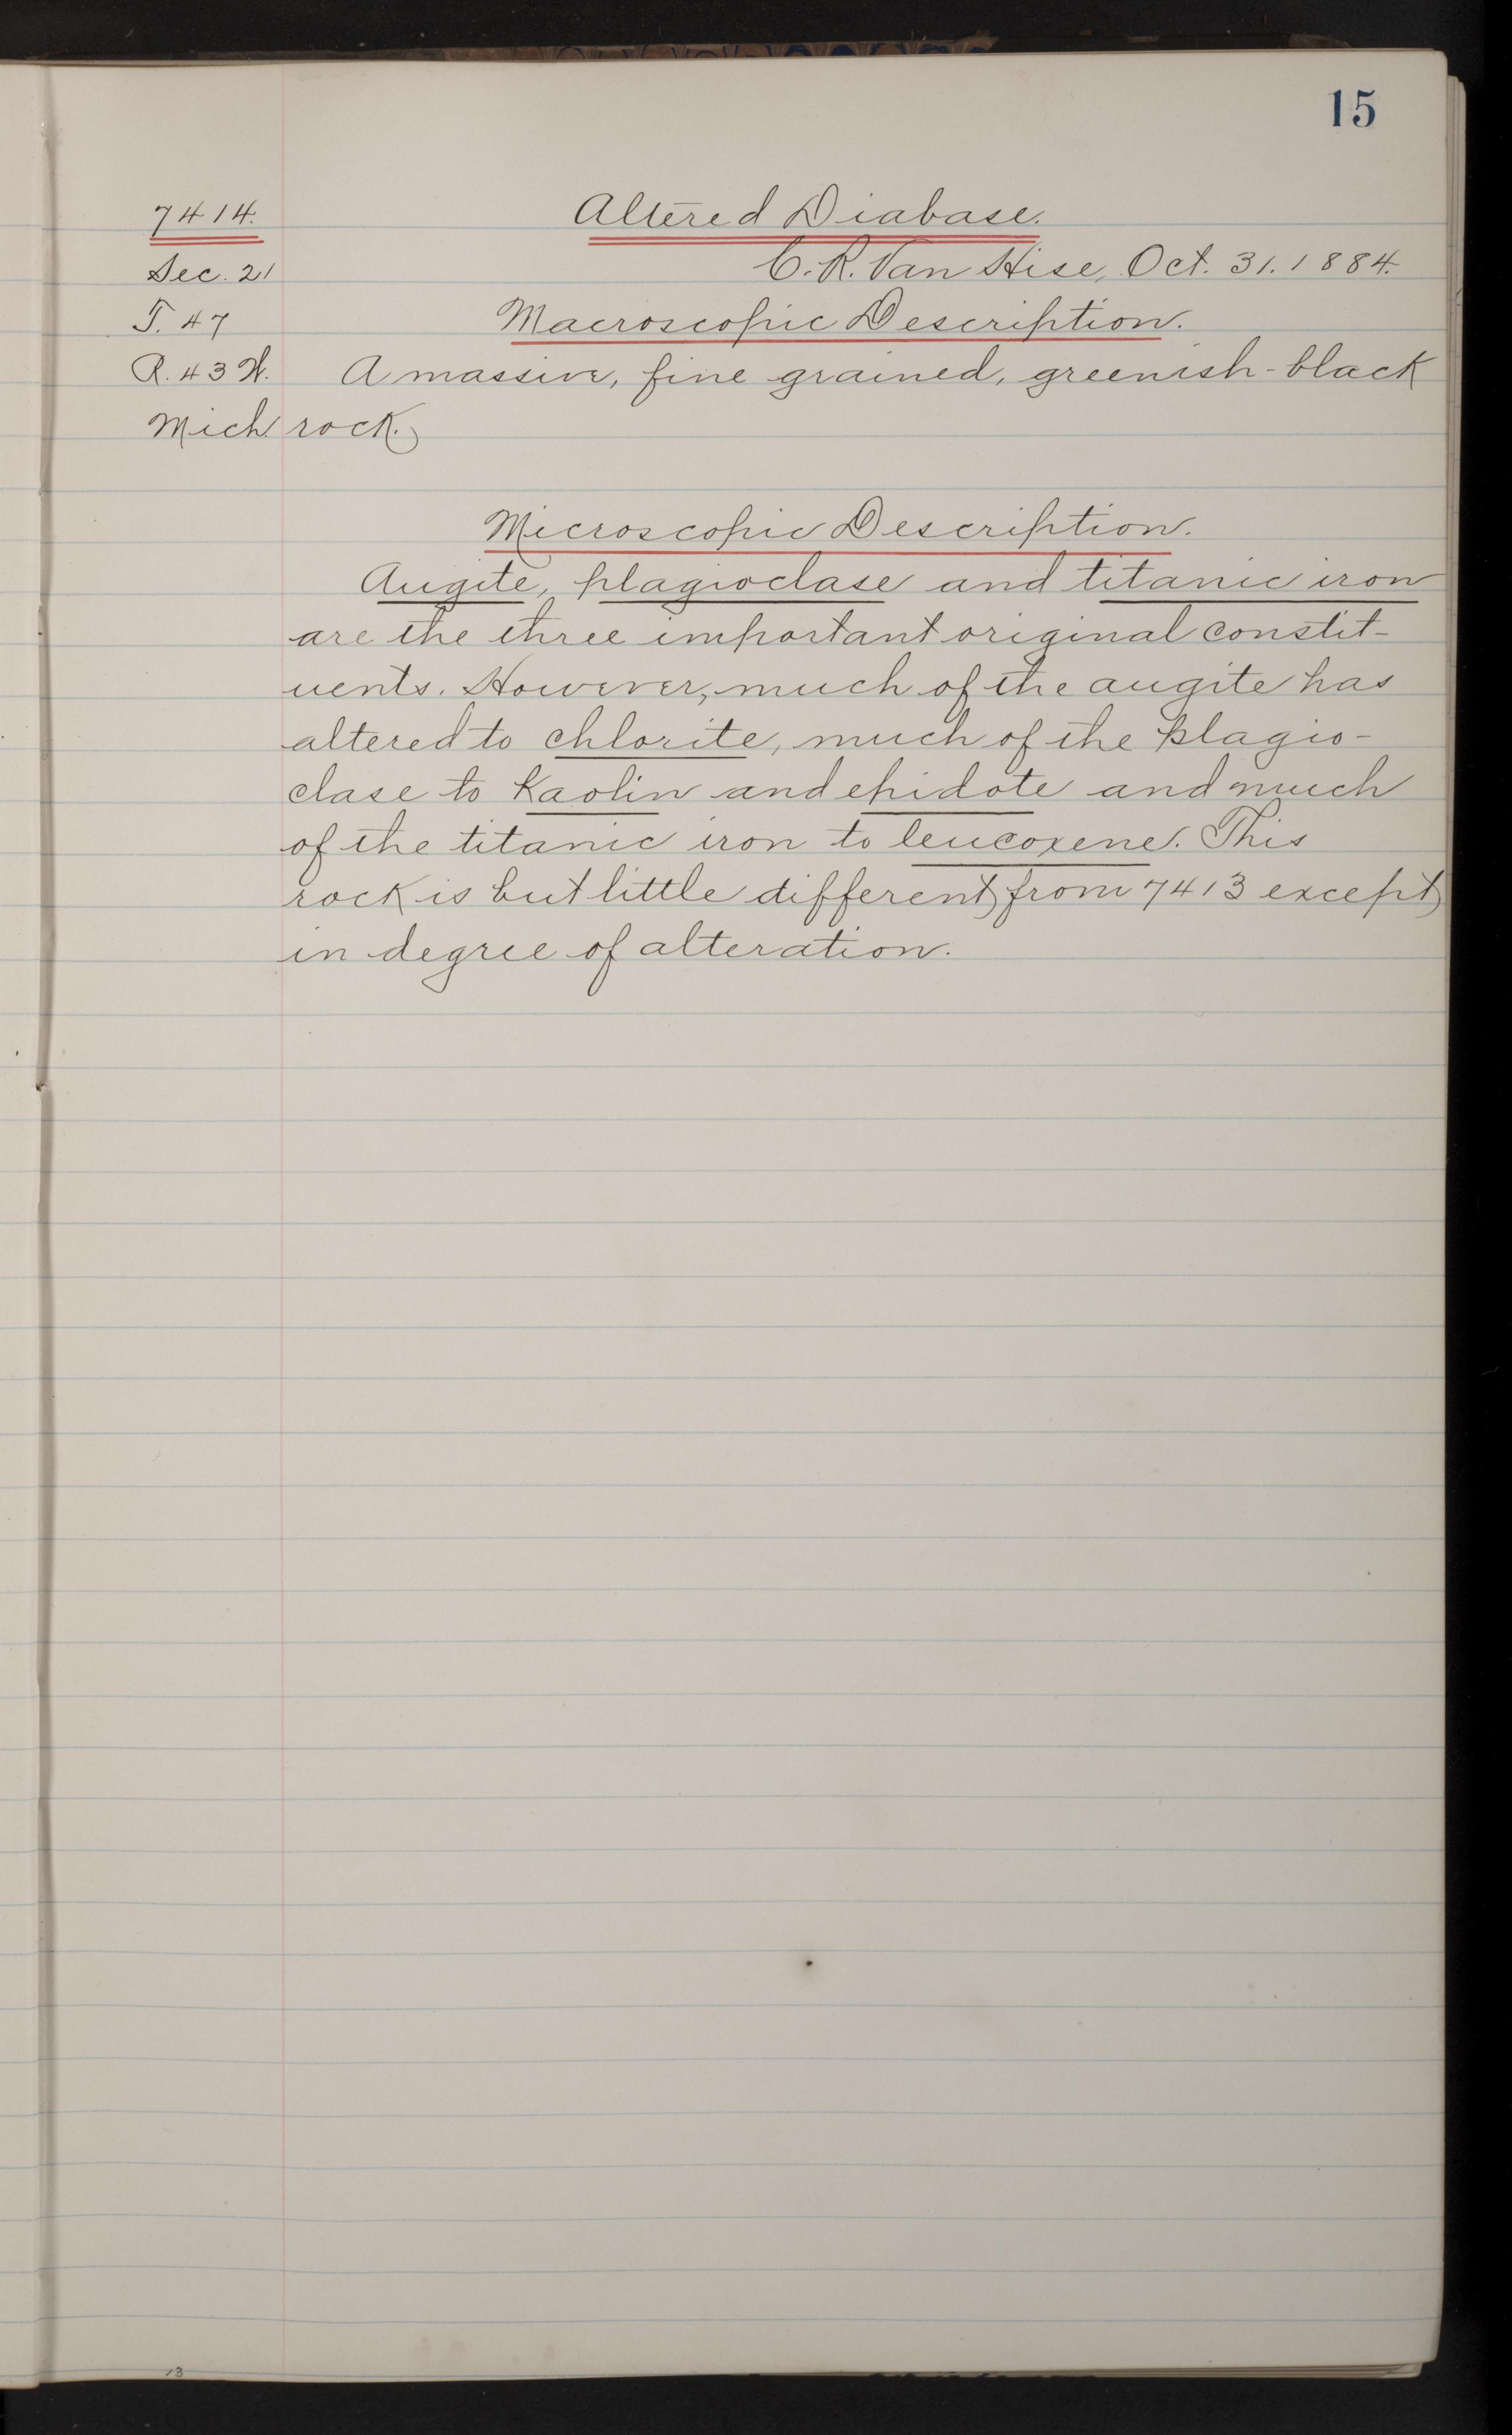 15
7414. Altered Diabase.
Sec. 21 C. R. Van Hise, Oct. 31. 1884.
T. 47 Macroscopic Description.
R. 43 W. A massive, fine grained, greenish-black
Mich. rock.
Microscopic Description.
Augite, plagioclase and titanic iron
are the three important original constit-
uents. However, much of the augite has
altered to chlorite, much of the plagio-
clase to Kaolin and epidote and much
of the titanic iron to leucoxene. This
rock is but little different from 7413 except
in degree of alteration.
13